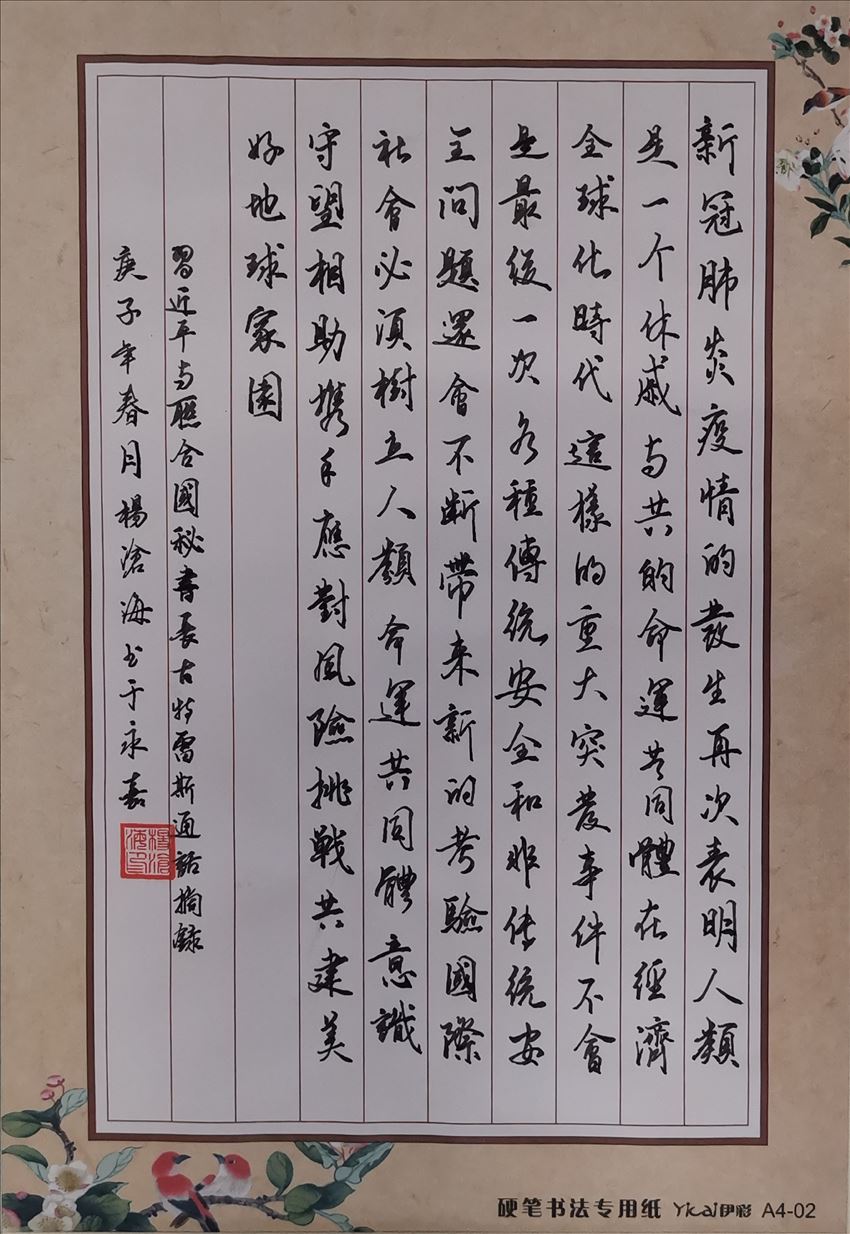 新冠肺炎疫情的發生再次表明人類
是一个休戚与共的命運共同體在經濟
全球化時代這樣的重大突發事件不會
是最後一次各種傳統安全和非传統安
全问題還會不断帶来新的考驗國際
社會必須樹立人類命運共同體意識
守望相助携手應對風險挑戰共建美
好地球家園
習近平与聯合國秘書長古特雷斯通話摘錄
庚子年春月楊滄海书于永嘉
楊滄海印
硬笔书法专用纸 Yicai伊彩 A4-02